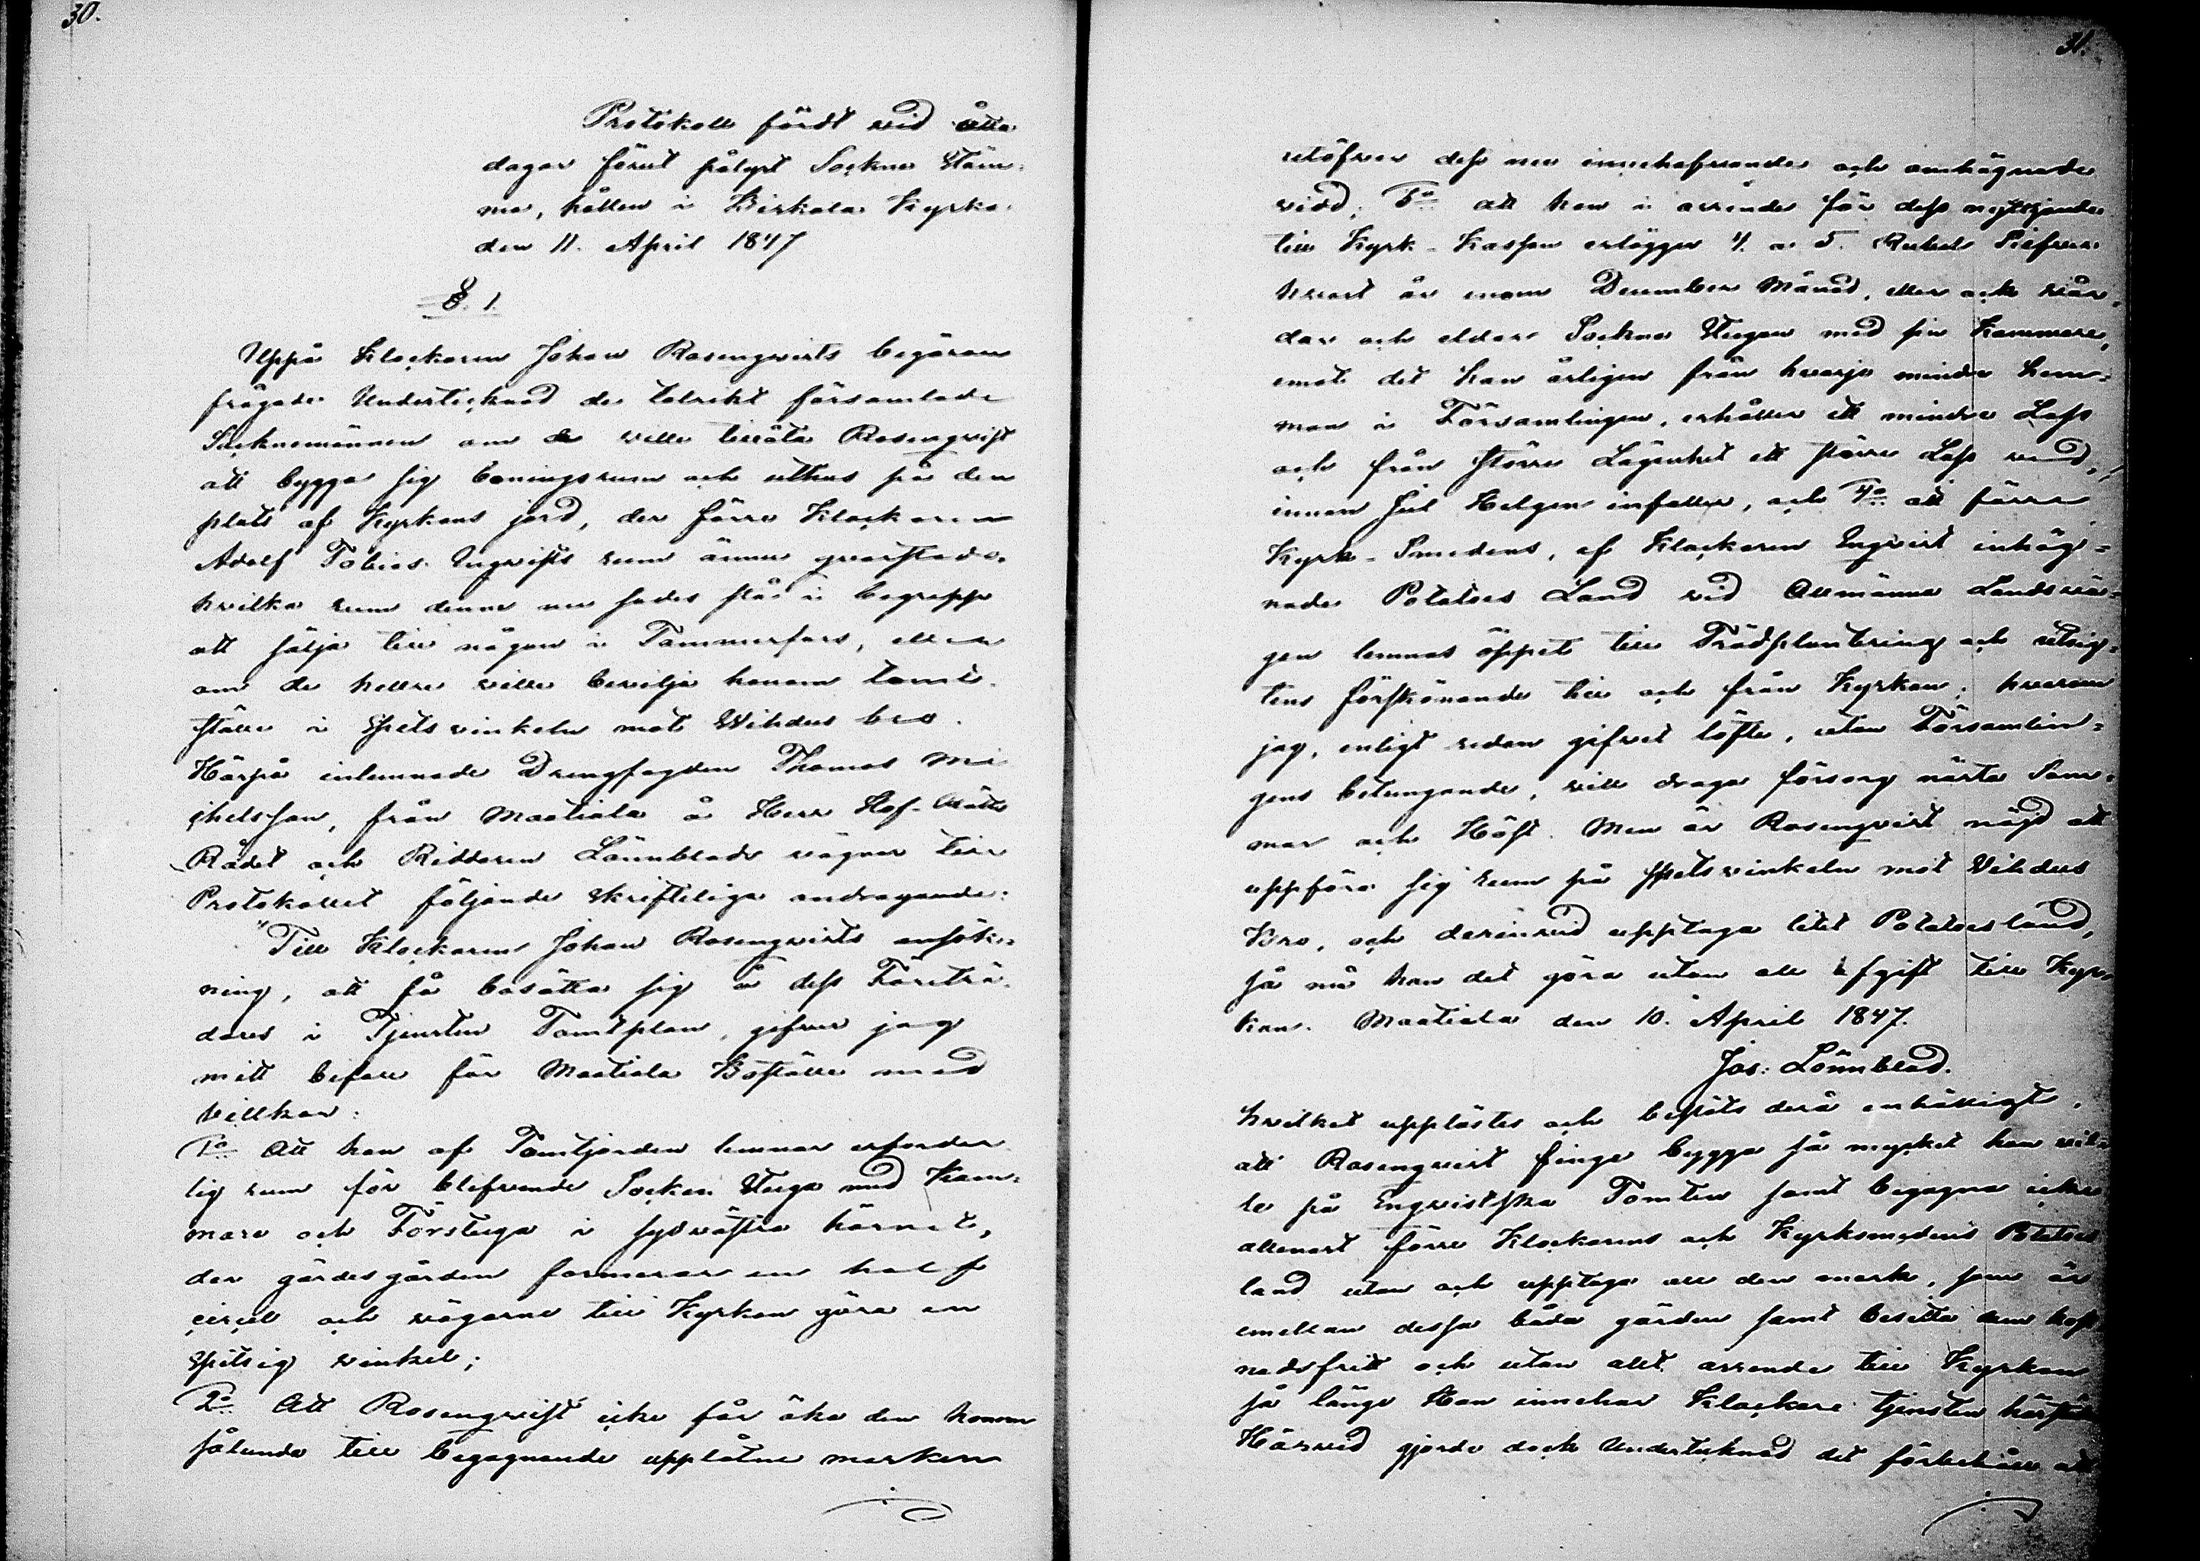 30.
Protokoll fördt vid åtta
dagar förut pålyst Sockne Stäm-
ma, hållen i Birkala Kyrka
den 11. April 1847
§. 1.
Uppå Klockaren Johan Rosenqvists begäran
frågade Undertecknad de talrikt församlade
Socknemännen om de ville tillåta Rosenqvist
att bygga sig boningsrum och uthus på den
plats af Kyrkans jord, der förre Klockaren
Adolf Tobias Engvists rum ännu qvarstode,
hvilka rum denne nu sades stå i begrepp
att sälja till någon i Tammerfors, eller
om de hellre ville bevilja honom tomt-
ställe i Spetsvinkeln mot Wihdus bro.
Härpå inlemnade Drengfogden Thomas Mi-
chelsson, från Maatiala å Herr Hof-Rätts
Rådet och Riddaren Lönnblads vägnar till
Protokollet följande skrifteliga andragande:
"Till Klockaren Johan Rosenqvists ansök-
ning, att få bosätta sig å dess Företrä-
dares i Tjensten Tomtplan, gifver jag
mitt bifall för Maatiala Boställe med
villkor:
1:o Att han af Tomtjorden lemnar erforder
lig rum för blifvande Socken Stuga med Kam-
mare och Förstuga i sydvästra hörnet,
der gärdesgården formerar en half
circel och vägarne till Kyrkan göra en
spetsig vinkel;
2:o Att Rosenqvist icke får öka den honom
sålunda till begagnande upplåtne marken
31.
utöfver dess nu innehafvande och omhägnade
vidd; 3:o att han i arrende för dess nyttjande
till Kyrk-Kassan erlägger 4. a 5. Rubel Silfver
hvart år inom December Månad, eller ock vår-
dar och eldar Sockne Stugan med sin Kammare,
emot det han årligen från hvarje mindre hem-
man i Församlingen, erhåller ett mindre Lass
och från större Lägenhet ett större Lass ved,
innan Jul Helgen infaller, och 4:o att förra
Kyrk-Smedens, af Klockaren Engvist inhäg-
nade Potatoes Land vid Allmänna Landsvä-
gen lemnas öppet till Trädplantering och utsig-
tens förskönande till och från Kyrkan; hvarom
jag, enligt redan gifvet löfte, utan Församlin-
gens betungande, vill draga försorg nästa Som-
mar och Höst. Men är Rosenqvist nöjd att
uppföra sig rum på Spetsvinkeln mot Vihdus
Bro, och derinvid upptaga litet Potatoesland,
så må han det göra utan all afgift till Kyr-
kan. Maatiala den 10. April 1847.
Jos: Lönnblad.
Hvilket upplästes och beslöts derå enhälligt,
att Rosenqvist finge bygga så mycket han vil-
le på Engvistska Tomten samt begagna icke
allenast förre Klockarens och Kyrksmedens Potatoes
land utan och upptaga all den mark, som är
emellan dessa båda gärden samt besitta dem kost
nadsfritt och utan allt arrende till Kyrkan
så länge Han innehar Klockare tjensten härstädes
Härvid gjorde dock Undertecknad det förbehåll att